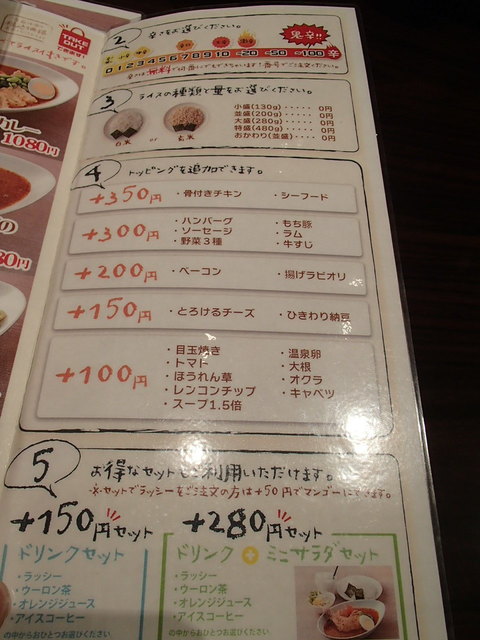 TAKE OUT
カレー
1080円
の
80円
2 辛さをお選びください。
鬼辛!!
0 1 2 3 4 5 6 7 8 9 10 ～20 ～50 ～100辛
3 ライスの種類と量をお選びください。
白米 or 玄米
小盛(130g)・・・・・0円
並盛(200g)・・・・・0円
大盛(280g)・・・・・0円
特盛(480g)・・・・・0円
おかわり(並盛)・・・・0円
4 トッピングを追加できます。
+350円 ・骨付きチキン ・シーフード
+300円
・ハンバーグ ・もち豚
・ソーセージ ・ラム
・野菜3種 ・牛すじ
+200円 ・ベーコン ・揚げラビオリ
+150円 ・とろけるチーズ ・ひきわり納豆
+100円
・目玉焼き ・温泉卵
・トマト ・大根
・ほうれん草 ・オクラ
・レンコンチップ ・キャベツ
・スープ1.5倍
5 お得なセットもご利用いただけます。
※セットでラッシーをご注文の方は+50円でマンゴーにできます。
+150円セット
ドリンクセット
・ラッシー
・ウーロン茶
・オレンジジュース
・アイスコーヒー
の中からおひとつお選びください
+280円セット
ドリンク+ミニサラダセット
・ラッシー
・ウーロン茶
・オレンジジュース
・アイスコーヒー
の中からおひとつお選びください